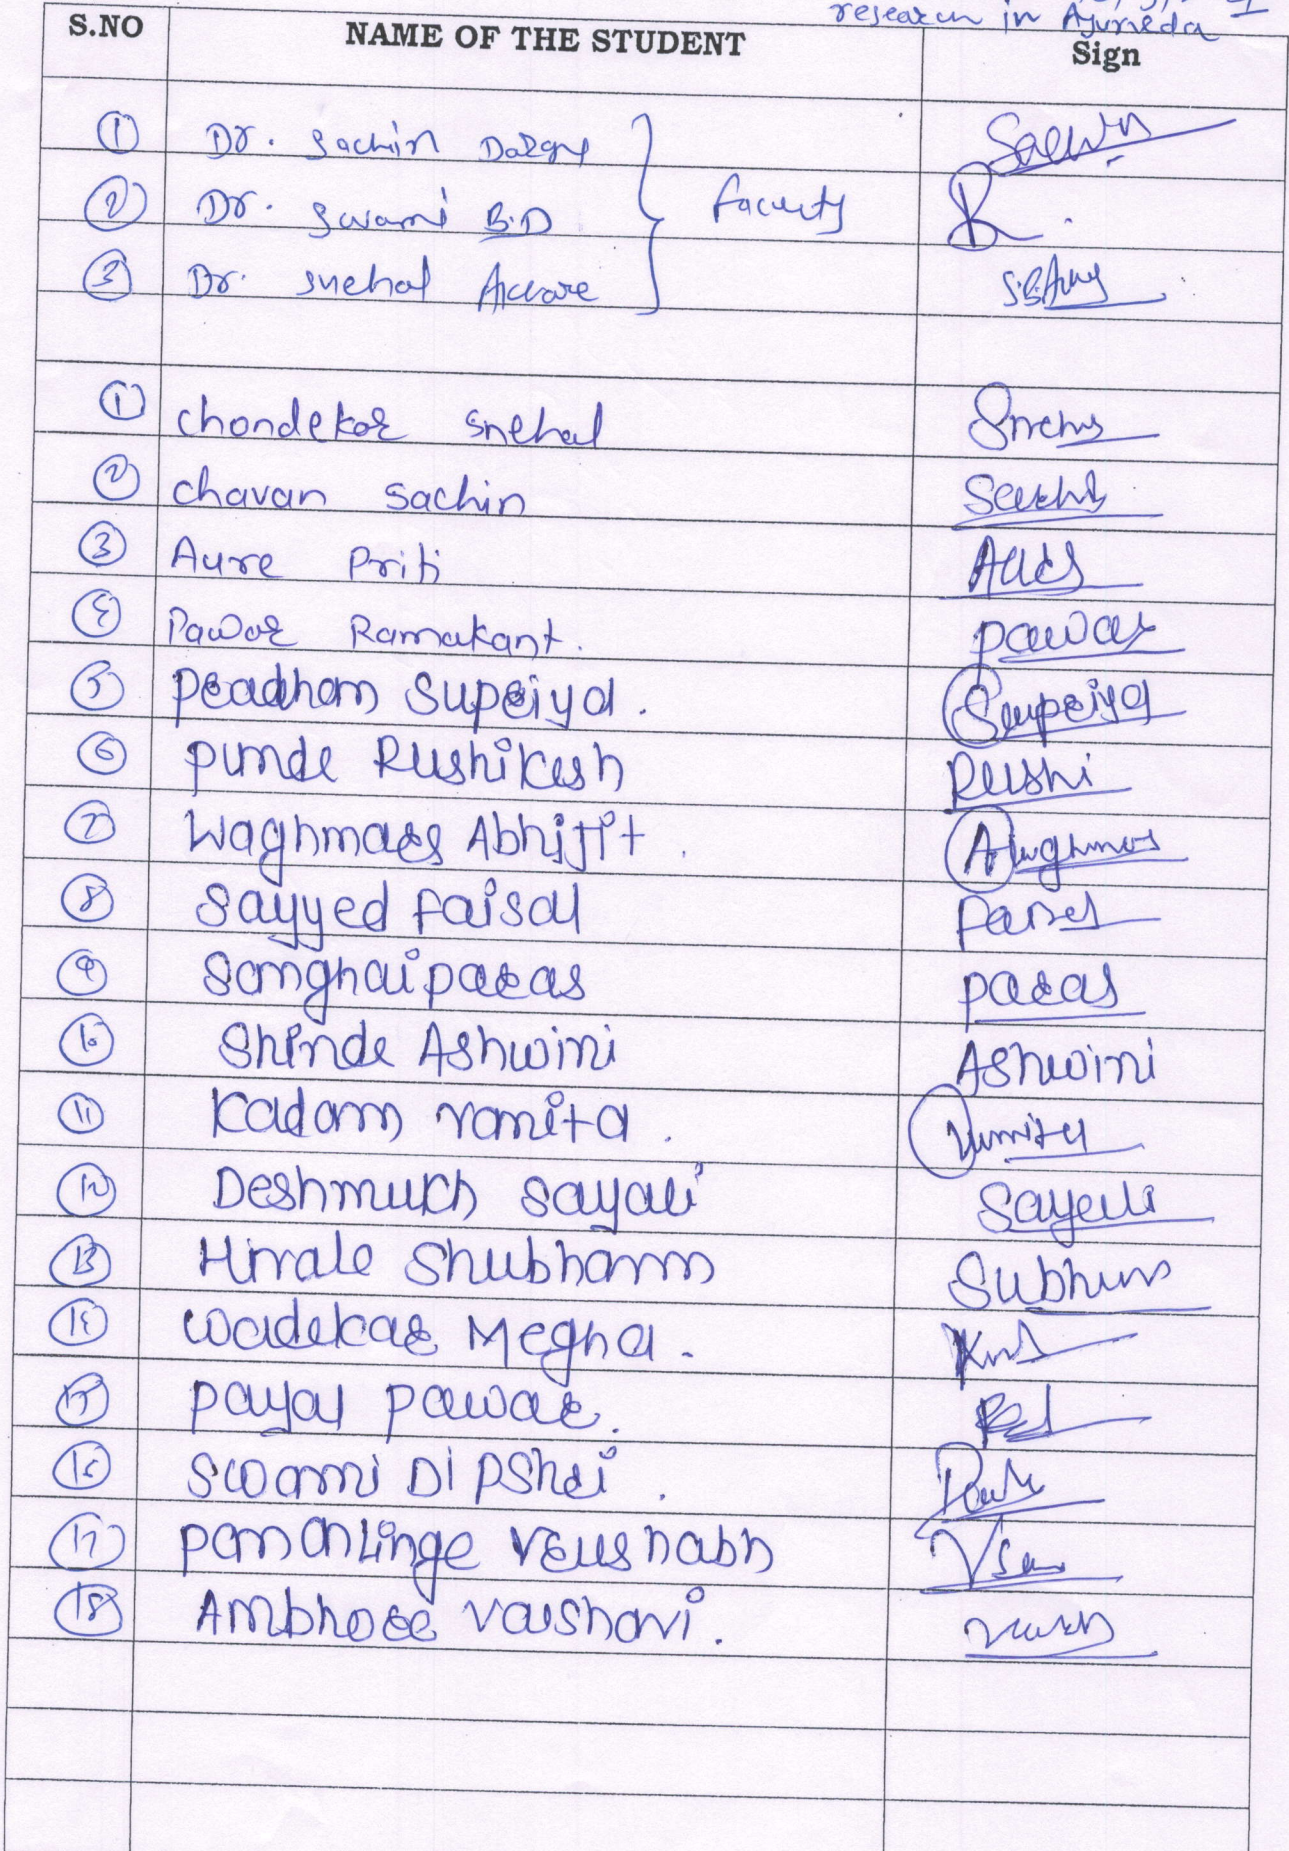 research in Ayurveda
S.NO NAME OF THE STUDENT Sign
① Dr. Sachin Sachin
② Dr. Swami B.D Faculty
③ Dr. Snehal
① Chondekar Snehal
② Chavan Sachin Sachin
③ Aure Priti
④ Pawar Ramakant. Pawar
⑤ Pradhan Supriya. Supriya
⑥ Punde Rushikesh Rushi
⑦ Waghmare Abhijit.
⑧ Sayyed Faisal
⑨ Sanghai Paras Paras
⑩ Shinde Ashwini Ashwini
⑪ Kadam Vanita. Vanita
⑫ Deshmukh Sayali Sayali
⑬ Hirale Shubham
⑭ Wadekar Megha.
⑮ Payal Pawar.
⑯ Swami Dipshri.
⑰ Vrushabh
⑱ Ambhore Vaishavi.